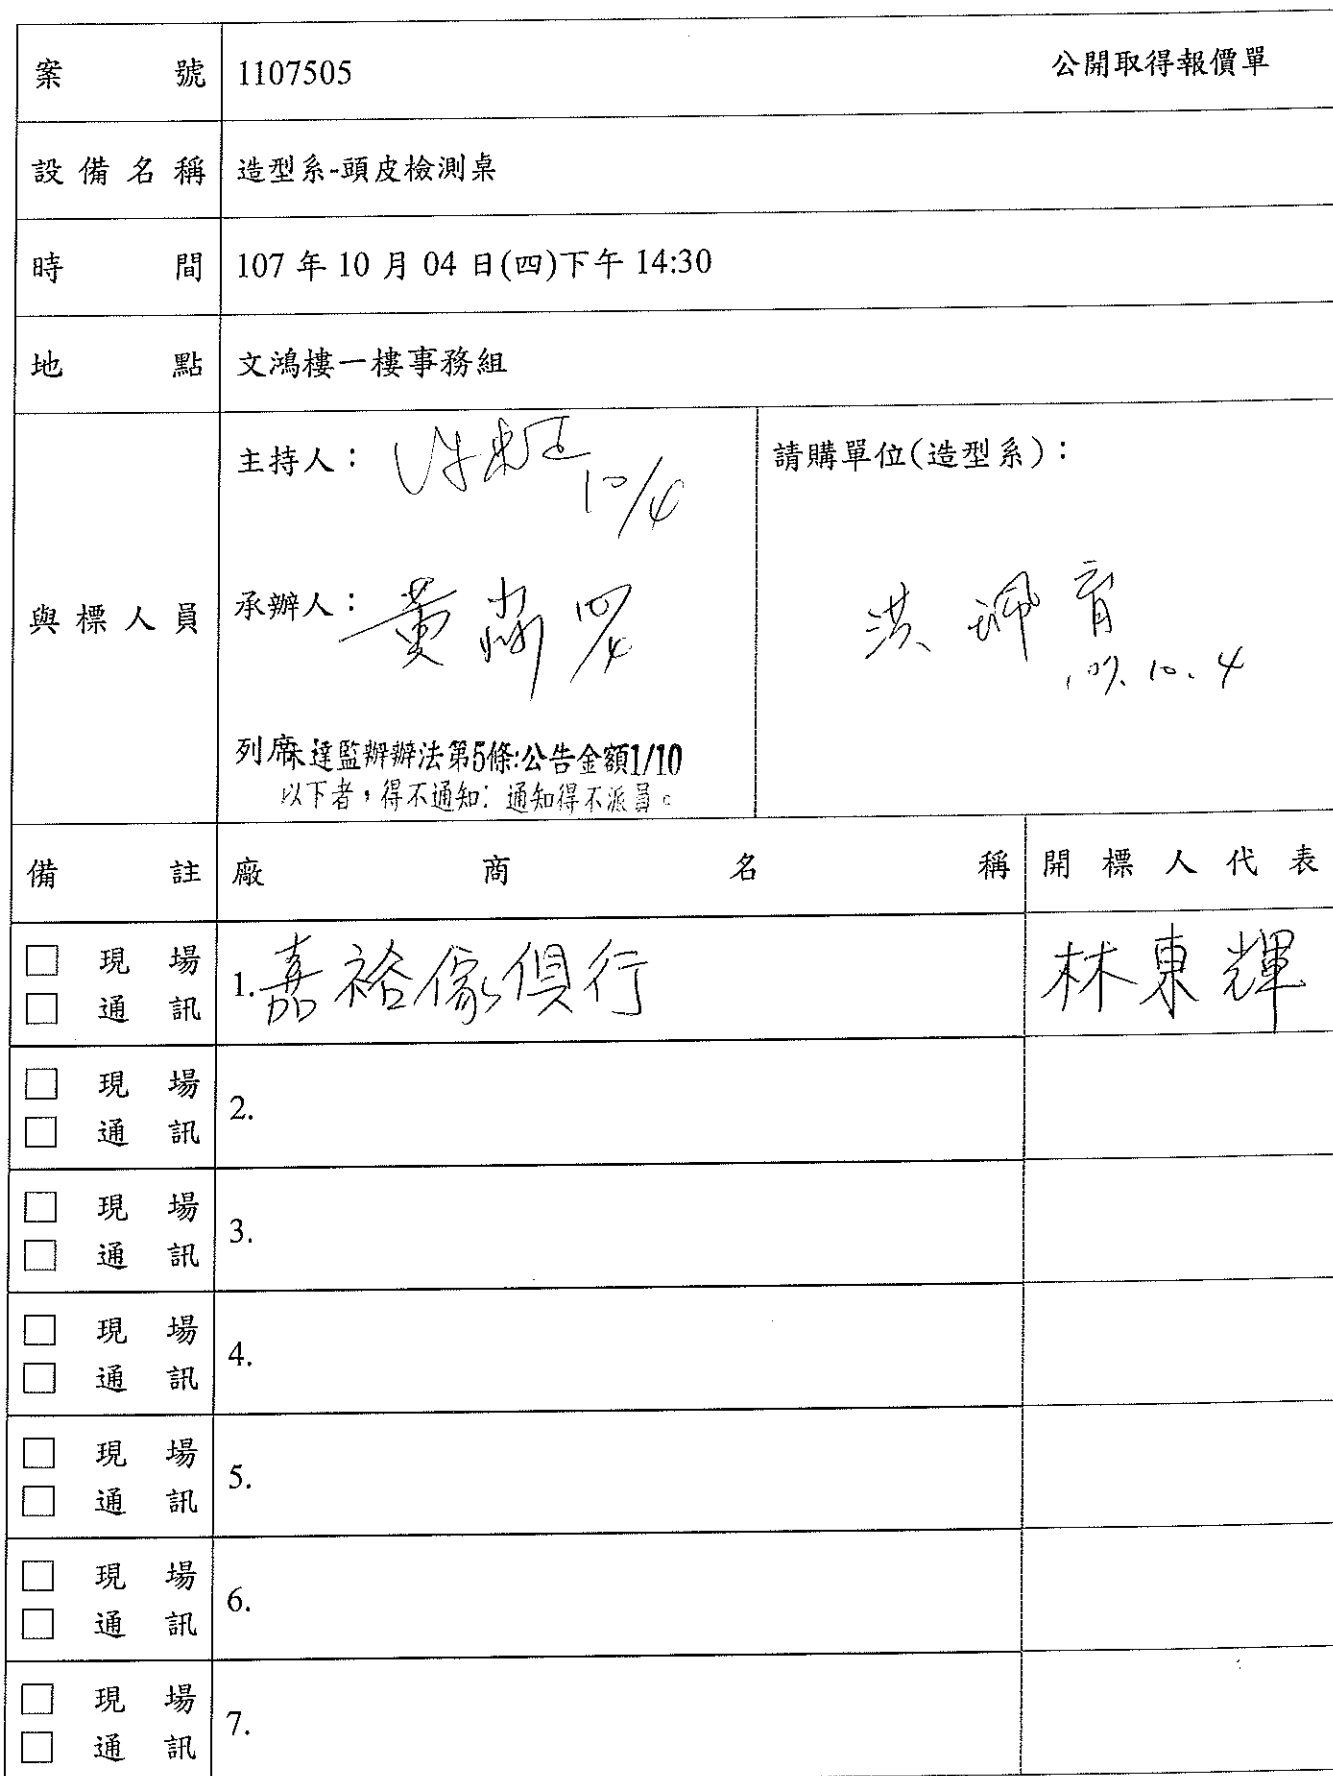 案號 1107505 公開取得報價單
設備名稱 造型系-頭皮檢測桌
時間 107 年 10 月 04 日(四)下午 14:30
地點 文鴻樓一樓事務組
與標人員
主持人： 10/4
承辦人：黃 10/4
列席 未達監辦辦法第5條:公告金額1/10
以下者，得不通知; 通知得不派員。
請購單位(造型系)：
洪珮育
107. 10. 4
備註 廠商名稱 開標人代表
□ 現場
□ 通訊
1. 嘉裕傢俱行 林東輝
□ 現場
□ 通訊
2.
□ 現場
□ 通訊
3.
□ 現場
□ 通訊
4.
□ 現場
□ 通訊
5.
□ 現場
□ 通訊
6.
□ 現場
□ 通訊
7.